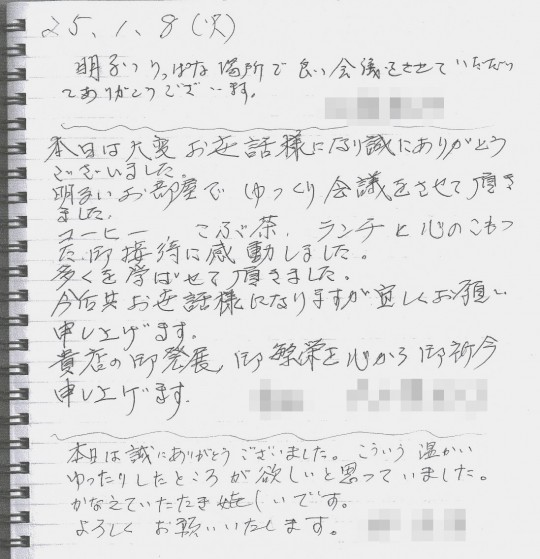 25.1.8(火)
明るいりっぱな場所で良い会議をさせていただい
てありがとうございます。
本日は大変お世話様になり誠にありがとう
ございました。
明るいお部屋でゆっくり会議をさせて頂き
ました。
コーヒー こぶ茶、ランチと心のこもっ
た御接待に感動しました。
多くを学ばせて頂きました。
今后共お世話様になりますが宜しくお願い
申し上げます。
貴店の御発展、御繁栄を心から御祈念
申し上げます。
本日は誠にありがとうございました。こういう温かい
ゆったりしたところが欲しいと思っていました。
かなえていただき嬉しいです。
よろしくお願いいたします。